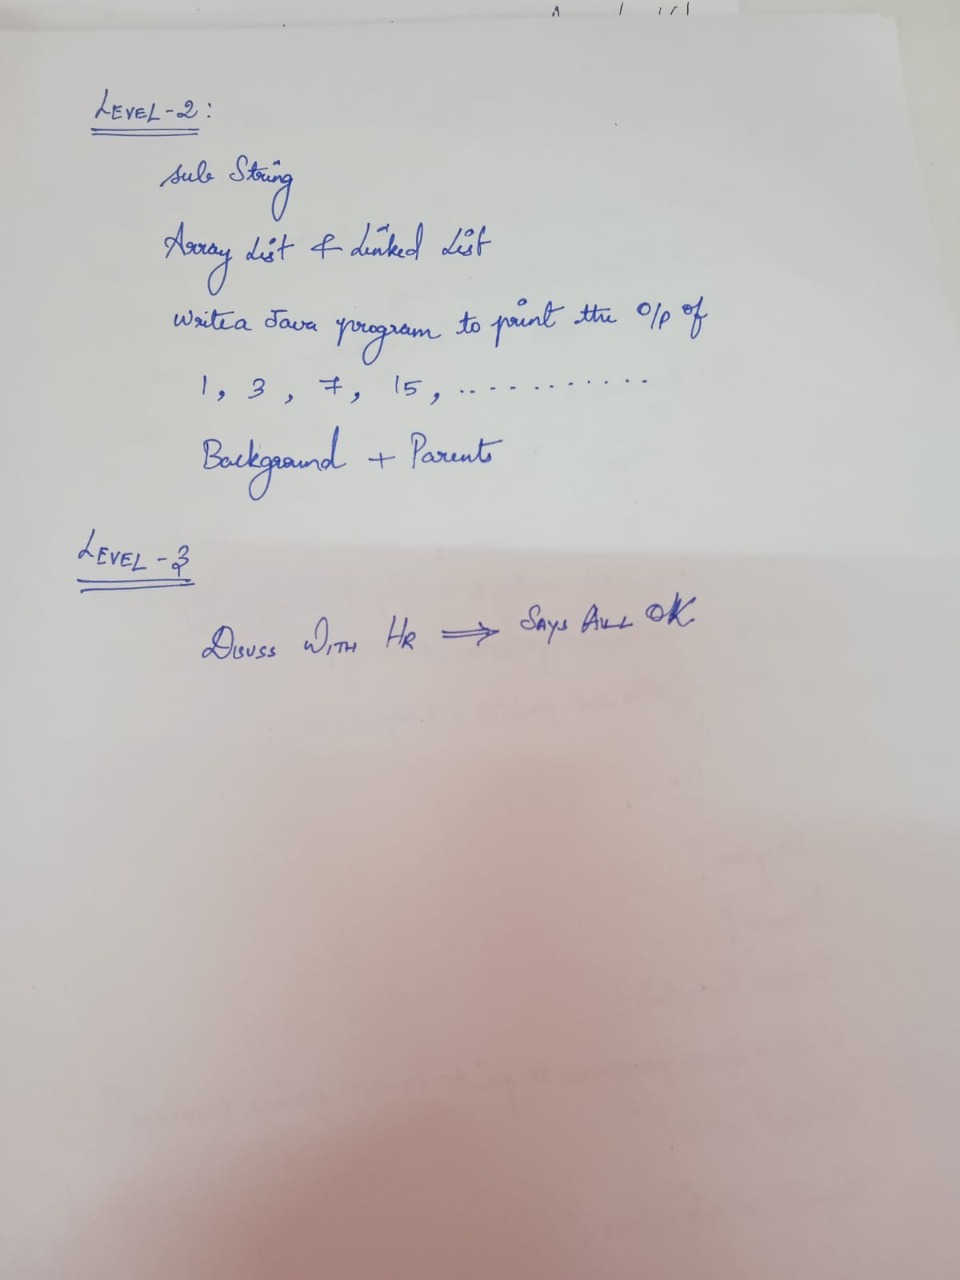 LEVEL-2:
Sub String
Array List & Linked List
Write a Java program to print the O/P of
1, 3, 7, 15, ............
Background + Parents
LEVEL-3
DISUSS WITH HR ⇒ SAYS ALL OK